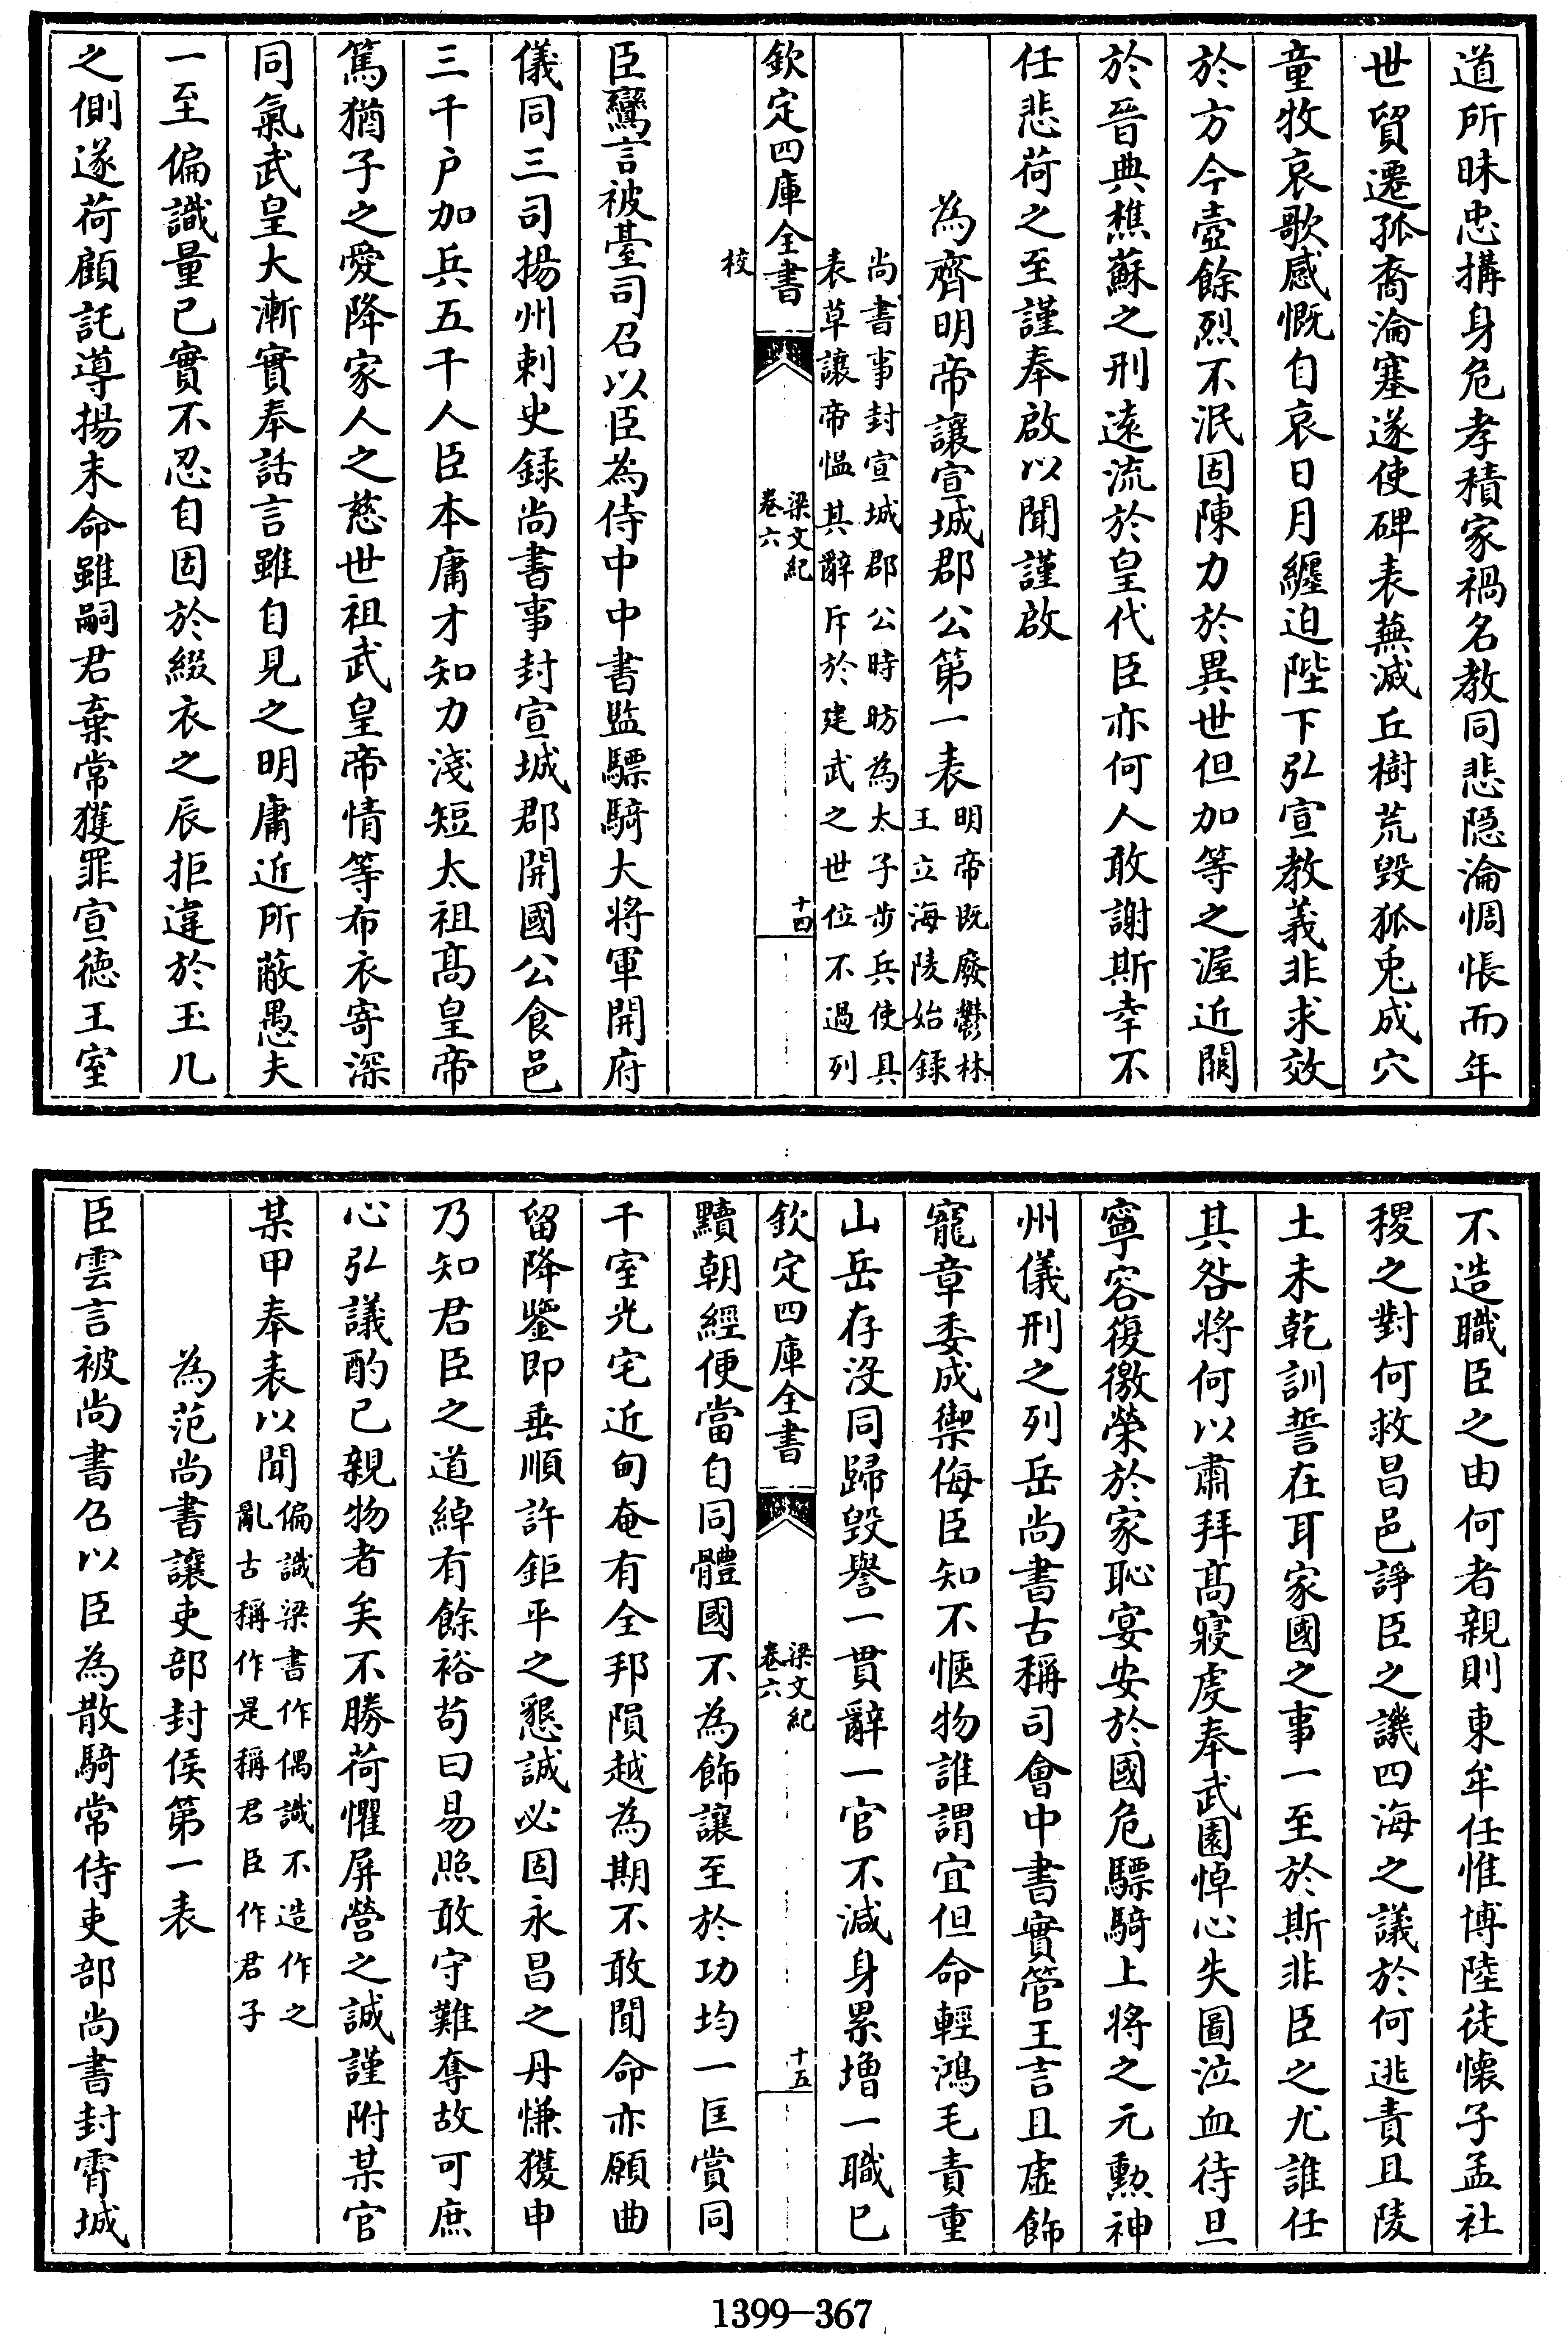 道所昧忠搆身危孝積家禍名教同悲隱淪惆悵而年
世貿遷孤裔淪塞遂使碑表蕪滅丘樹荒毀狐兎成穴
童牧哀歌感慨自哀日月纏迫陛下弘宣教義非求效
於方今壼餘烈不泯固陳力於異世但加等之渥近闕
於晉典樵蘇之刑遠流於皇代臣亦何人敢謝斯幸不
任悲荷之至謹奉啟以聞謹啟
為齊明帝讓宣城郡公第一表明帝既廢鬱林
王立海陵始錄
尚書事封宣城郡公時昉為太子步兵使具
表草讓帝慍其辭斥於建武之世位不過列
欽定四庫全書
梁文紀
卷六
十四
校
臣鸞言被臺司召以臣為侍中中書監驃騎大将軍開府
儀同三司揚州刺史録尚書事封宣城郡開國公食邑
三千户加兵五千人臣本庸才知力淺短太祖髙皇帝
篤猶子之愛降家人之慈世祖武皇帝情等布衣寄深
同氣武皇大漸實奉話言雖自見之明庸近所蔽愚夫
一至偏識量已實不忍自固於綴衣之辰拒違於玉几
之側遂荷顧託導揚末命雖嗣君棄常獲罪宣德王室
不造職臣之由何者親則東牟任惟博陸徒懐子孟社
稷之對何救昌邑諍臣之譏四海之議於何逃責且陵
土未乾訓誓在耳家國之事一至於斯非臣之尤誰任
其咎将何以肅拜髙寢虔奉武園悼心失圖泣血待旦
寧容復徼榮於家恥宴安於國危驃騎上将之元勲神
州儀刑之列岳尚書古稱司會中書實管王言且虛飾
寵章委成禦侮臣知不愜物誰謂宜但命輕鴻毛責重
山岳存沒同歸毀譽一貫辭一官不減身累增一職已
欽定四庫全書
梁文紀
卷六
十五
黷朝經便當自同體國不為飾讓至於功均一匡賞同
千室光宅近甸奄有全邦隕越為期不敢聞命亦願曲
留降鑒即垂順許鉅平之懇誠必固永昌之丹慊獲申
乃知君臣之道綽有餘裕苟曰易照敢守難奪故可庶
心弘議酌已親物者矣不勝荷懼屏營之誠謹附某官
某甲奉表以聞偏識梁書作偶識不造作之
亂古稱作是稱君臣作君子
為范尚書讓吏部封侯第一表
臣雲言被尚書召以臣為散騎常侍吏部尚書封霄城
1399-367